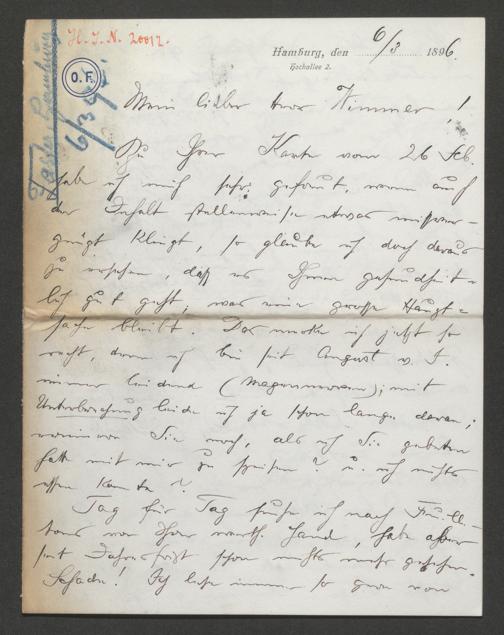 H. I. N. 20012.
Hamburg, den 6/3 1896.
Hochallee 2.
O. F.
6/3 96
Mein lieber Herr Wimmer!
Zu Ihrer Karte vom 26 Feb.
habe ich mich sehr gefreut, wenn auch
der Inhalt stellenweise etwas missver-
gnügt klingt, so glaube ich doch daraus
zu ersehen, daß es Ihnen gesundheit-
lich gut geht, was eine grosse Haupt-
sache bleibt. Das merke ich jetzt so
recht, denn ich bin seit August v. J.
immer leidend (Magen); mit
Unterbrechung leide ich ja schon lange daran;
Sie noch, als ich Sie gebeten
hatte mit mir zu speisen? u. ich nichts
essen konnte?
Tag für Tag sehe ich nach Feuille-
tons von Ihrer werth. Hand, habe aber
seit Jahresfrist schon nichts mehr gesehen.
Schade! Ich lese immer so gern von